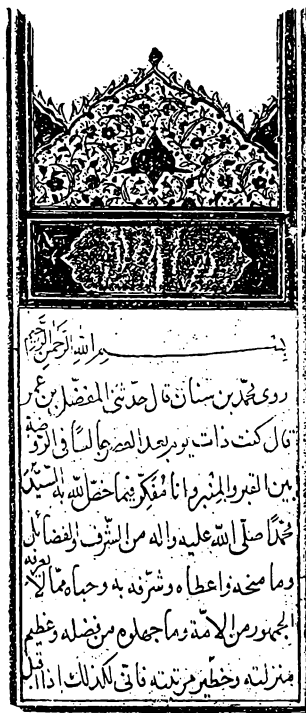 بسم الله الرحمن الرحيم
روى محمد بن سنان قال حدثنى المفضل بن عمر
قال كنت ذات يوم بعد العصر جالسا فى الروضة
بين القبر والمنبر وانا مفكر فيما خص الله به السيد
محمدا صلى الله عليه واله من الشرف والفضائل
وما منحه واعطاه وشرفه به وحباه مما لا يعرفه
الجمهور من الامة وما جهلوه من فضله وعظيم
منزلته وخطير مرتبته فانى لكذلك اذ اقبل